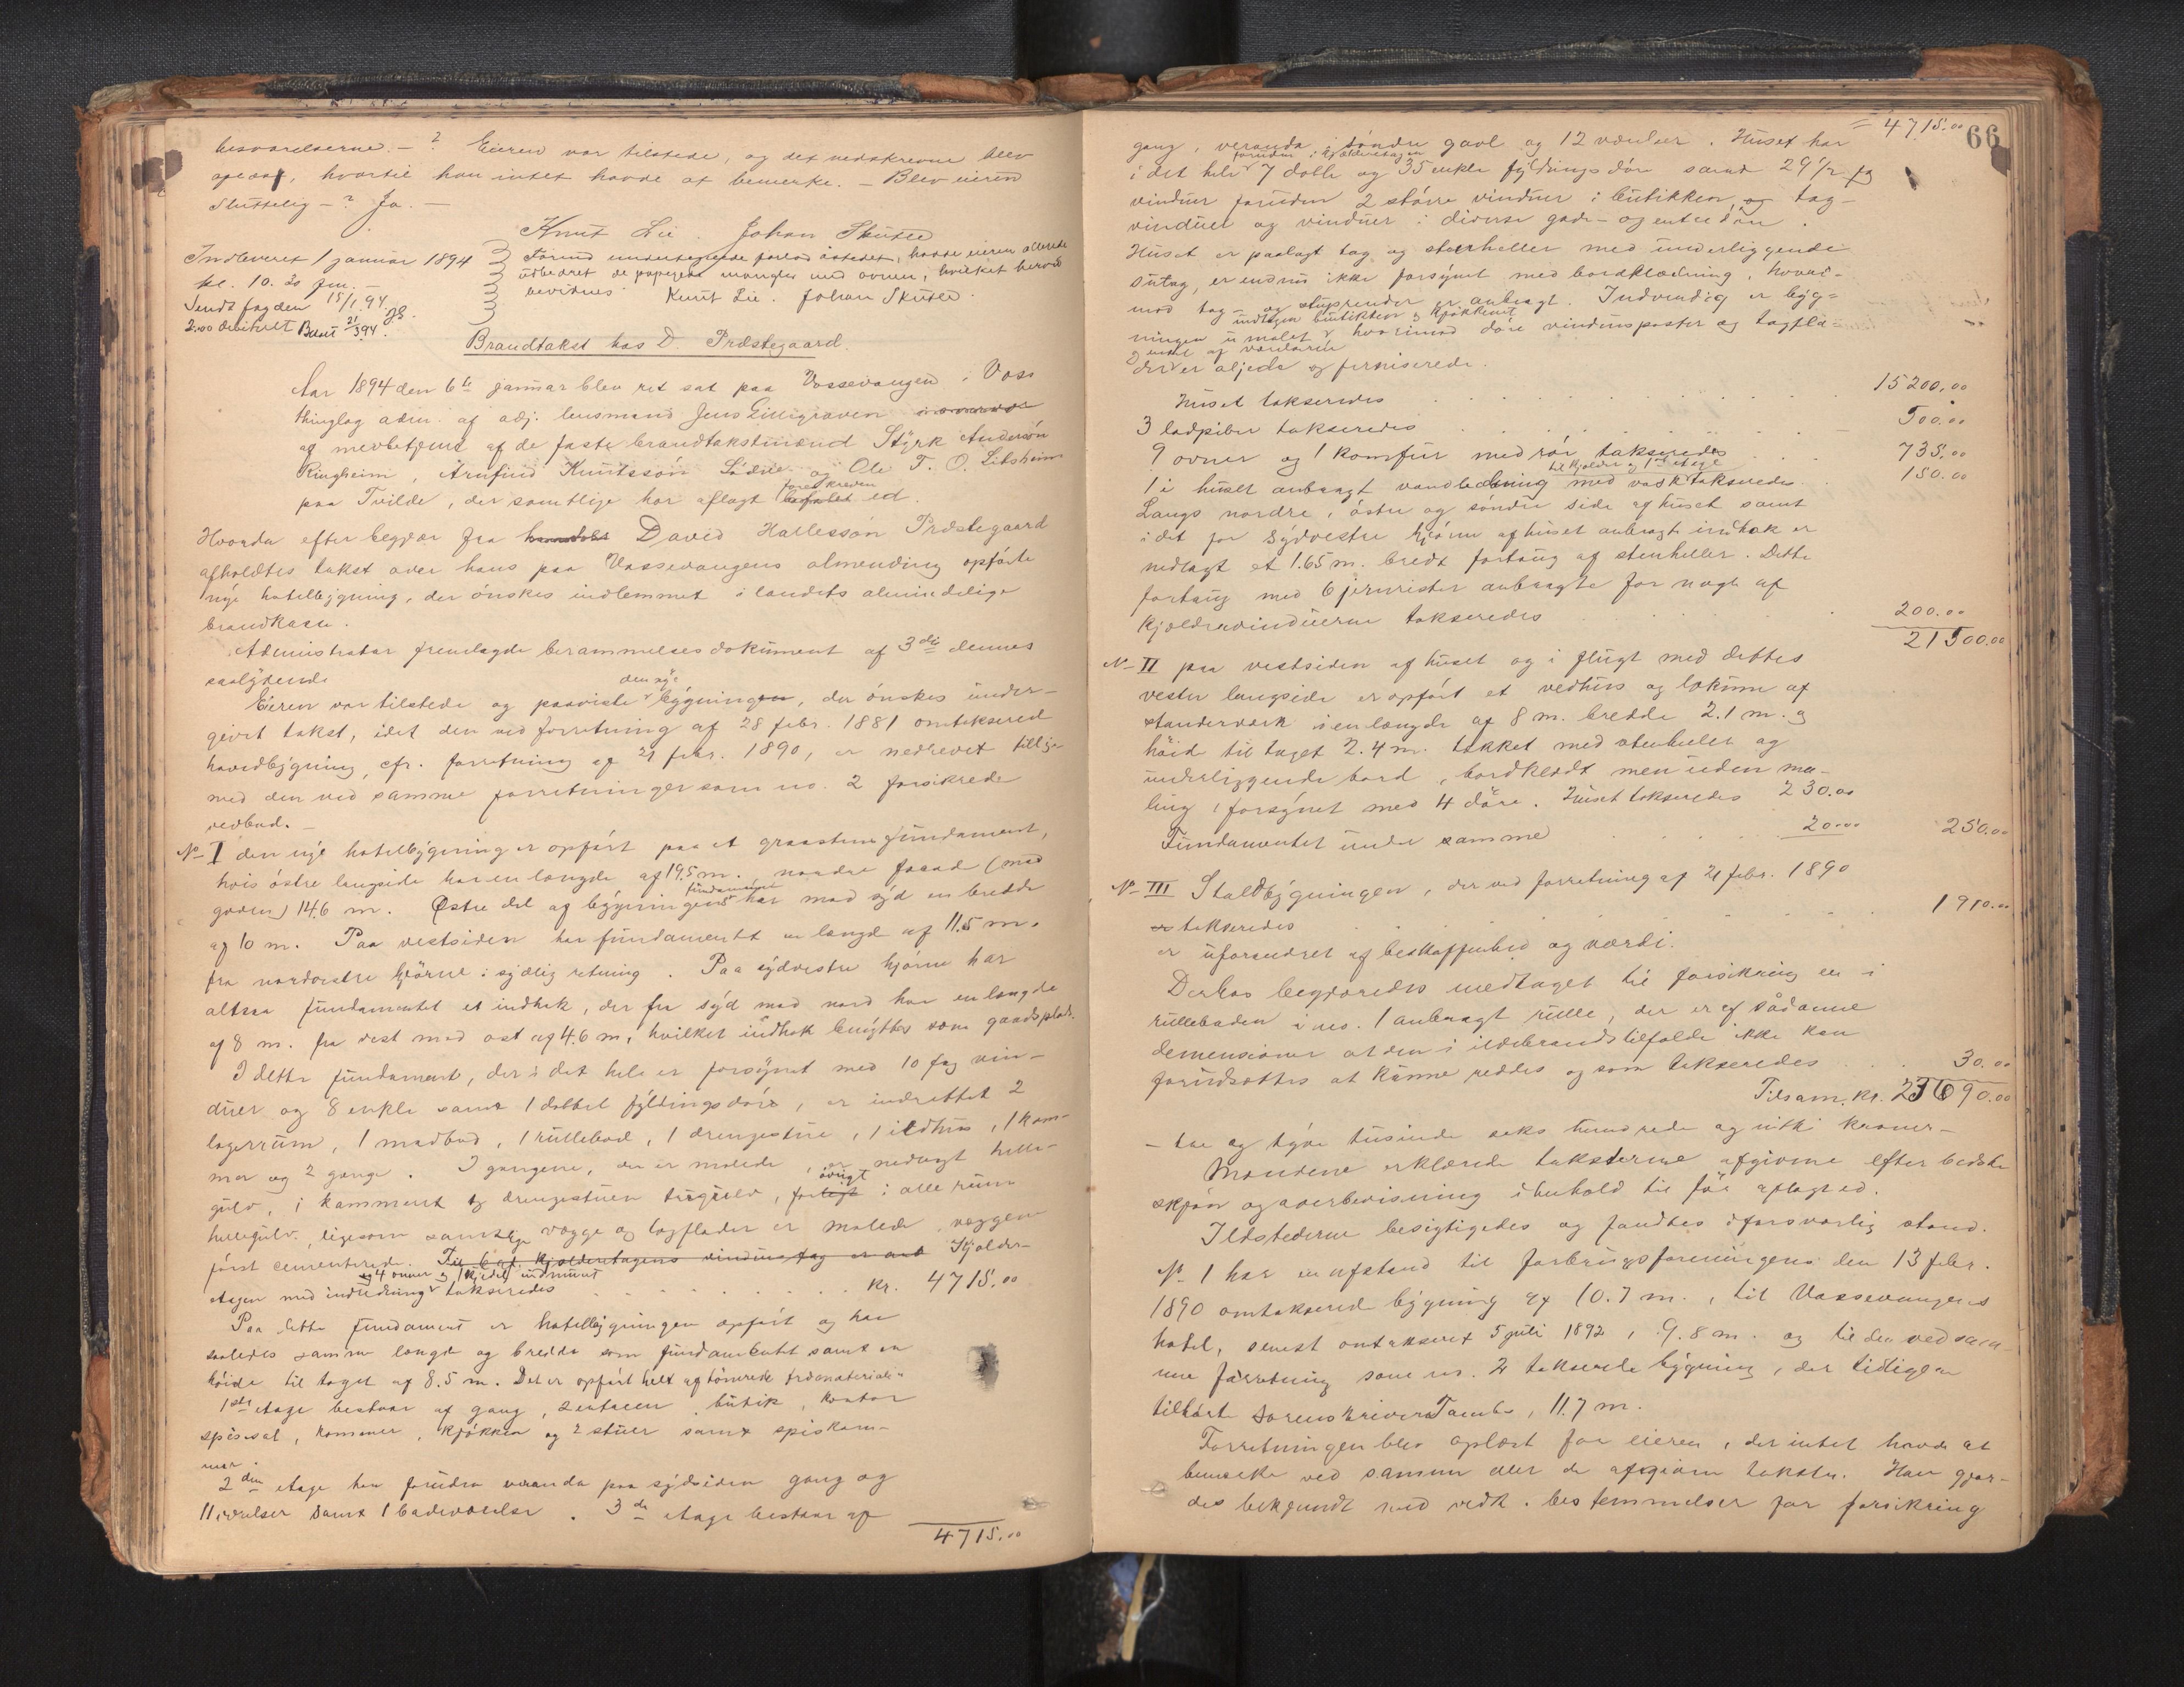 besvarelserne. – ? Eieren var tilstede, og det nedskrevne blev
oplæst, hvortil han intet havde at bemerke. – Blev eieren
Sluttelig – ? Ja. –
Knut Lie. Johan Skutle
Indleveret 1 januar 1894
kl. 10.30 fm. –
Sendt fogden 15/1 94
2.00 Betalt 21/3 94.
Førend undertegnede forlod åstedet, havde eieren allerede
udbedret de papegede mangler med ovnen, hvilket herved
bevidnes. Knut Lie. Johan Skutle.
Brandtakst hos D. Præstegaard.
Aar 1894 den 6te januar blev ret sat paa Vossevangen i Voss
thinglag adm. af adj. lensmand Jens Gilligraven
og medbetjent af de faste brandtakstmænd Styrk Anderson
Ringheim, Arnfind Knutsson Sødre og Ole T. O. Litsheim
paa Tvilde, der samtlige har aflagt foreskreven ed.
Hvorda efter begjær fra David Hallesson Præstegaard
afholdtes takst over hans paa Vossevangens almending opførte
nye hotelbygning, der ønskes indlemmet i landets almindelige
brandkasse.
Administrator fremlagde berammelsesdokument af 3die dennes
saalydende
Eieren var tilstede og paaviste den nye bygning, der ønskes under-
givet takst, idet den ved forretning af 28 febr. 1881 omtaksered
hovedbygning, cfr. forretning af 21 febr. 1890, er nedrevet tillige
med den ved samme forretninger som no. 2 forsikrede
vedbod. –
No I den nye hotelbygning er opført paa et graastensfundament,
hvis østre langside har en længde af 19.5 m., nordre facade (mod
gaden) 14.6 m. Østre del af bygningens fundament har mod syd en bredde
af 10 m. Paa vestsiden har fundamentet en længde af 11.5 m.
fra nordvestre hjørne i sydlig retning. Paa sydvestre hjørne har
altsaa fundamentet et indhak, der fra syd mod nord har en længde
af 8 m. fra vest mod øst af 4.6 m, hvilket indhak benyttes som gaardsplads.
I dette fundament, der i det hele er forsynet med 10 fag vin-
duer og 8 enkle samt 1 dobbel fyldingsdøre, er indrettet 2
lagerrum, 1 madbod, 1 rullebod, 1 drengestue, 1 ildhus, 1 kam-
mer og 2 gange. I gangene, der er malede, er nedlagt helle-
gulv, i kammeret og drengestuen trægulv, forøvrigt i alle rum
hellegulv, ligesom samtlige vægge og tagflader er malede, væggene
først cementerede. Til 6 af kjælderetagens vinduesfag er anb Kjælder-
etagen med indredning og 4 ovner og 1 kjedel indmuret takseredes . . . . . Kr. 4715.00
Paa dette fundament er hotelbygningen opført og har
saaledes samme længde og bredde som fundamentet samt en
høide til taget af 8.5 m. Det er opført helt af tømrede træmaterialer
1ste etage bestaar af gang, 2 entreer, butik, kontor
spisesal, kammer, kjøkken og 2 stuer samt spiskam-
mer.
2den etage har foruden veranda paa sydsiden gang og
11 værelser samt 1 badeværelse. 3de etage bestaar af
4715.00
= 4715.00
66
gang, veranda i søndre gavl og 12 værelser. Huset har
i det hele foruden i kjælderetagen 7 dolle og 35 enkle fyldingsdøre samt 29 1/2 fag
vinduer foruden 2 større vinduer i butikken, og tag-
vinduer og vinduer i diverse gade- og entredøre.
Huset er paalagt tag og stenheller med underliggende
sutag, er endnu ikke forsynet med bordklædning, hvori-
mod tag- og stuprender er anbragt. Indvendig er byg-
ningen undtagen butikken og kjøkkenet umalet hvorimod døre vinduesposter og tagfla-
der 2 enkel af værelserne er oljede og ferniserede.
Huset takseredes . . . . . 15200.00
3 ladpiber takseredes . . . . . 500.00
9 ovner og 1 komfur med rør takseredes . . . 735.00
1 i huset anbragt vandledning med vask til kjælder og 1ste etage takseredes . 150.00
Langs nordre, østre og søndre side af huset samt
i det paa sydvestre hjørne af huset anbragte indhak er
nedlagt et 1.65 m. bredt fortaug af stenheller. Dette
fortaug med 6 jernrister anbragte for nogle af
kjældervinduerne takseredes . . . . 200.00
21500.00
No II paa vestsiden af huset og i flugt med dettes
vestre langside er opført et vedhus og lokum af
standerværk i en længde af 8 m. bredde 2.1 m. og
høid til taget 2.4 m. tækket med stenheller og
underliggende bord, bordklædt men uden ma-
ling, forsynet med 4 døre. Huset takseredes 230.00
Fundamentet under samme . . . 20.00 250.00
No III Staldbygningen, der ved forretning af 21 febr. 1890
takseredes . . . . . 1910.00
er uforandret af beskaffenhed og værdi.
Derhos begjæredes medtaget til forsikring en i
rulleboden i no. 1 anbragt rulle, der er af sådanne
demensioner at den i ildebrandstilfælde ikke kan
forudsættes at kunne reddes og som takseredes . . 30.00
Tilsam. Kr. 23690.00
– tre og tyve tusinde seks hundrede og nitti kroner –
Mændene erklærede taksterne afgivne efter bedste
skjøn og overbevisning i henhold til før aflagt ed.
Ildstederne besigtigedes og fandtes i forsvarlig stand.
No 1 har en afstand til forbrugsforeningens den 13 febr.
1890 omtakserede bygning af 10.7 m., til Vossevangens
hotel, senest omtakseret 5 juli 1892, 9.8 m. og til den ved sam-
me forretning som no. 2 takserede bygning, der tidligere
tilhørte sorenskriver Tambs, 11.7 m.
Forretningen blev oplæst for eieren, der intet havde at
bemerke ved samme eller de afgivne takster. Han gjør-
des bekjendt med vedk. bestemmelser for forsikring